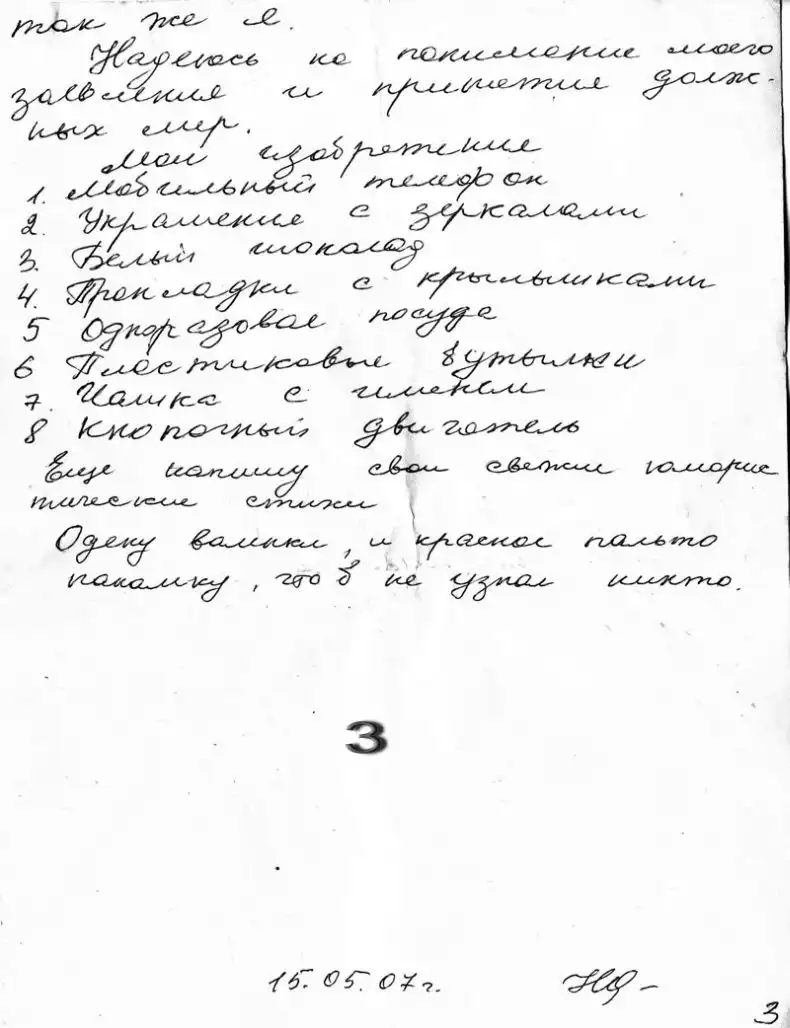 так же я.
Надеюсь на понимание моего
заявления и принятия долж-
ных мер.
Мои изобретение
1. Мобильный телефон
2. Украшение с зеркалами
3. Белый шоколад
4. Прокладки с крылышками
5 Одноразовая посуда
6 Пластиковые бутылки
7. Чашка с именем
8 Кнопочный двигатель
Еще напишу свои свежие юморис
тические стихи
Одену валенки, и красное пальто
панамку, что б не узнал никто.
3
15.05.07г.
3